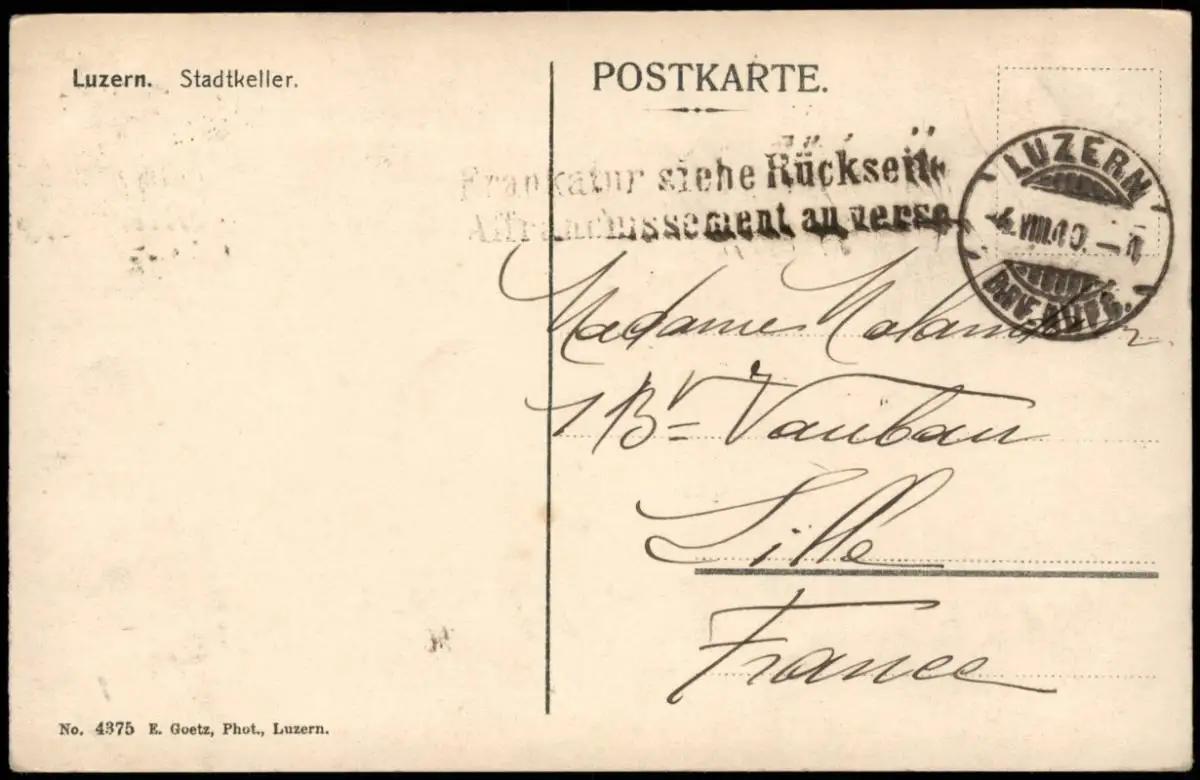 Luzern. Stadtkeller.
POSTKARTE.
Frankatur siehe Rückseite
Affranchissement au verso
LUZERN
VIII.10.
Madame
1 Bᵈ Vauban
Lille
France
No. 4375 E. Goetz, Phot., Luzern.